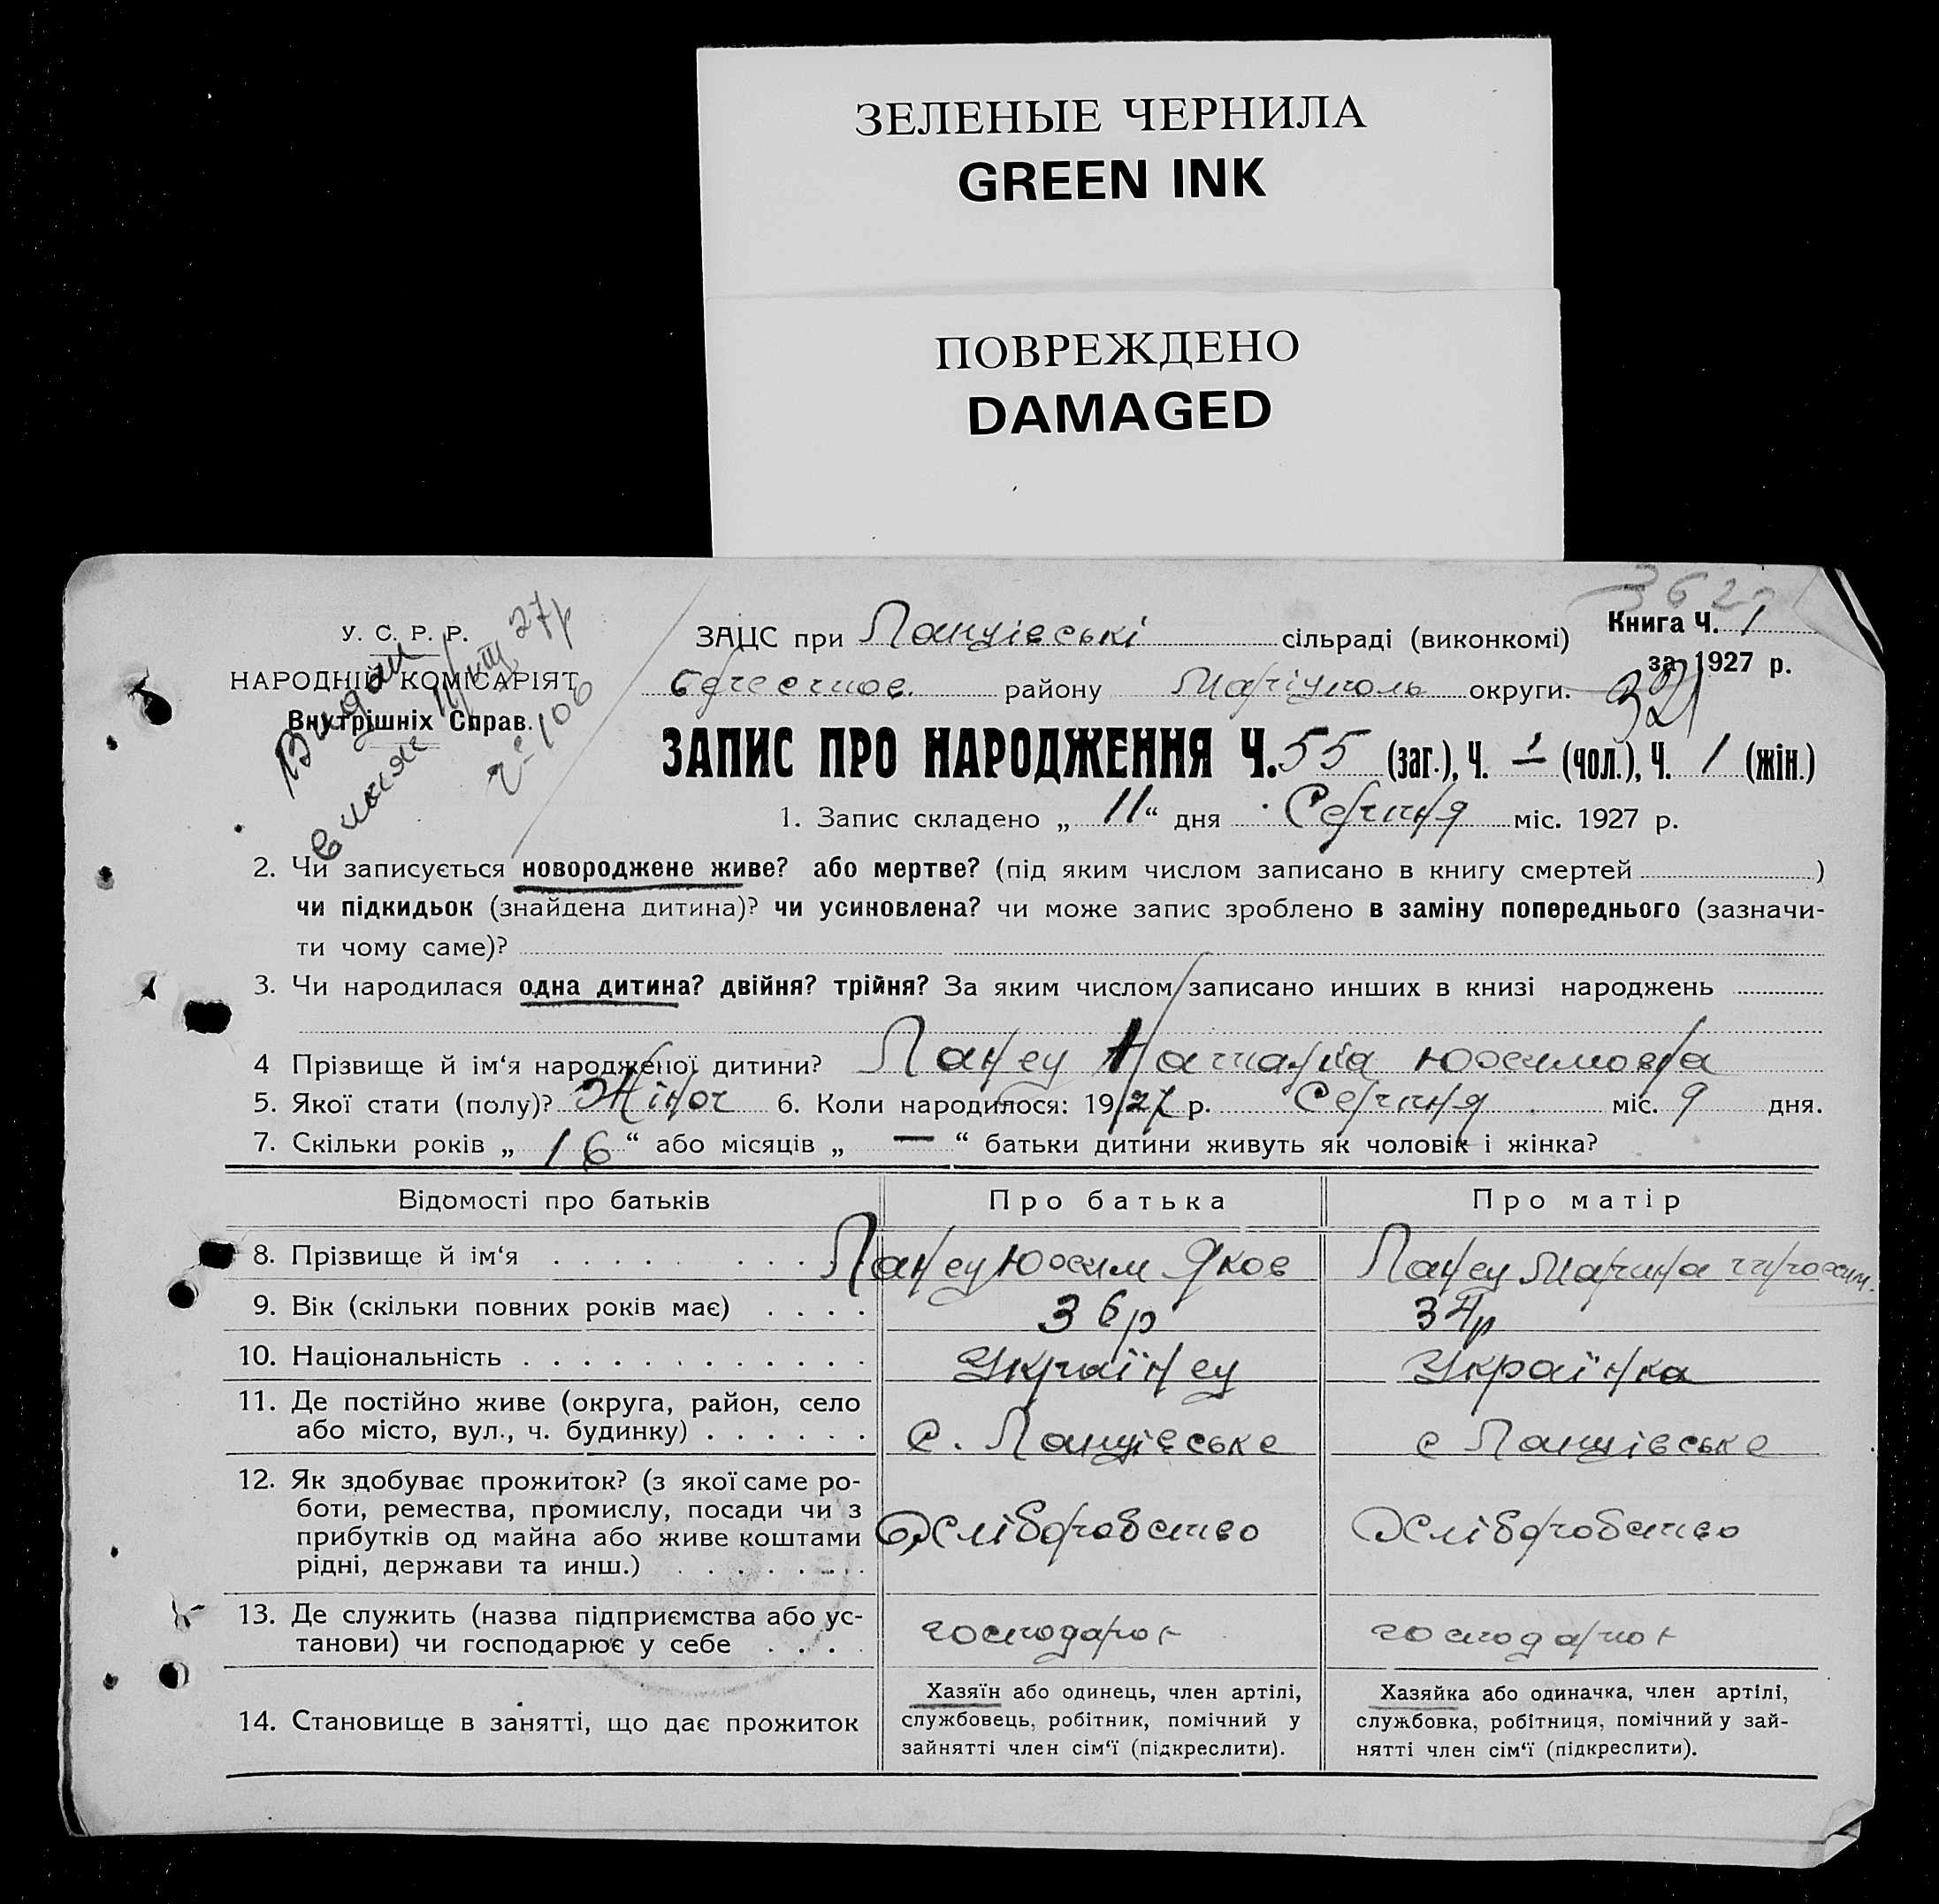 ЗЕЛЕНЫЕ ЧЕРНИЛА
GREEN INK
ПОВРЕЖДЕНО
DAMAGED
У. С. Р. Р.
НАРОДНІЙ КОМІСАРІЯТ
Внутрішніх Справ.
Видан
27р
ЗАЦС при сільраді (виконкомі)
Книга Ч. 1
за 1927 р.
району Маріуполь округи.
321
ЗАПИС ПРО НАРОДЖЕННЯ Ч. 55 (заг.), Ч. – (чол.), Ч. 1 (жін.)
1. Запис складено „ 11 “ дня Січня міс. 1927 р.
2. Чи записується новороджене живе? або мертве? (під яким числом записано в книгу смертей )
чи підкидьок (знайдена дитина)? чи усиновлена? чи може запис зроблено в заміну попереднього (зазначи-
ти чому саме)?
3. Чи народилася одна дитина? двійня? трійня? За яким числом записано инших в книзі народжень
4 Прізвище й ім‘я народженої дитини? Наталка Юхимовна
5. Якої стати (полу)? Жіноч 6. Коли народилося: 1927 р. Січня міс. 9 дня.
7. Скільки років „ 16 “ або місяців „ — “ батьки дитини живуть як чоловік і жінка?
Відомості про батьків Про батька Про матір
8. Прізвище й ім‘я Юхим Яков Марина
9. Вік (скільки повних років має) 36р 34р
10. Національність Українец Українка
11. Де постійно живе (округа, район, село
або місто, вул., ч. будинку) с. с
12. Як здобуває прожиток? (з якої саме ро-
боти, ремества, промислу, посади чи з
прибутків од майна або живе коштами
рідні, держави та инш.) Хліборобство Хліборобство
13. Де служить (назва підприємства або ус-
танови) чи господарює у себе господарює господарює
14. Становище в занятті, що дає прожиток
Хазяїн або одинець, член артілі,
службовець, робітник, помічний у
зайнятті член сім‘ї (підкреслити).
Хазяйка або одиначка, член артілі,
службовка, робітниця, помічний у зай-
нятті член сім‘ї (підкреслити).